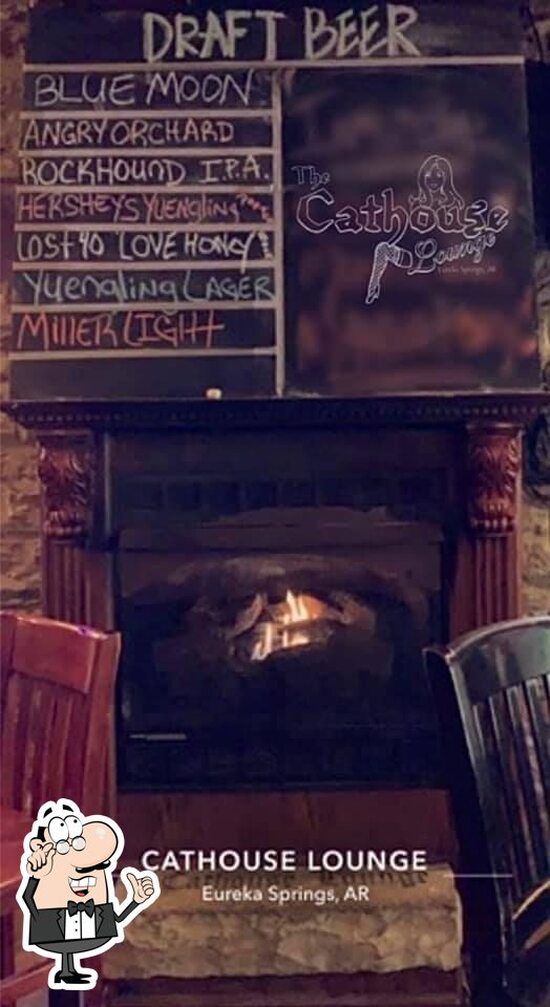 DRAFT BEER
BLUE MOON
ANGRY ORCHARD
ROCKHOUND I.P.A.
HERSHEY'S YUENGling
LOST 40 LOVE HONEY
Yuengling LAGER
MILLER LIGHT
The
Cathouse
Lounge
Eureka Springs, AR
CATHOUSE LOUNGE
Eureka Springs, AR